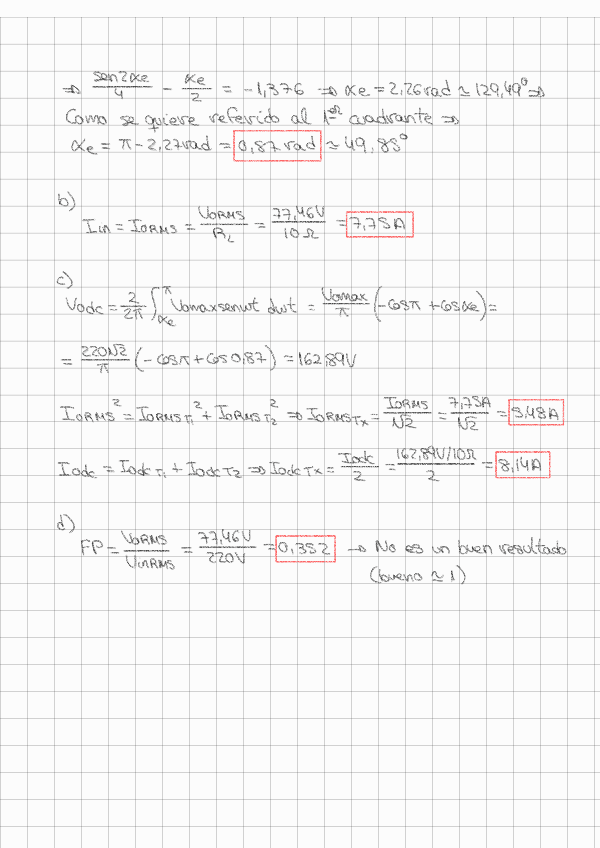 ⇒ sen2αe/4 − αe/2 = −1,376 ⇒ αe = 2,26 rad ≃ 129,49° ⇒
Como se quiere referido al 1er cuadrante ⇒
αe = π − 2,27 rad = 0,87 rad ≃ 49,85°
b)
Iin = IORMS = VORMS/RL = 77,46V/10Ω = 7,75A
c)
Vodc = 2/2π ∫αe^π Vomaxsenwt dwt = Vomax/π (−cosπ + cosαe) =
= 220√2/π (−cosπ + cos0,87) = 162,89V
IORMS² = IORMST1² + IORMST2² ⇒ IORMSTx = IORMS/√2 = 7,75A/√2 = 5,48A
Iodc = IodcT1 + IodcT2 ⇒ IodcTx = Iodc/2 = 162,89V/10Ω/2 = 8,14A
d)
FP = VORMS/VinRMS = 77,46V/220V = 0,352 → No es un buen resultado
(bueno ≃ 1)